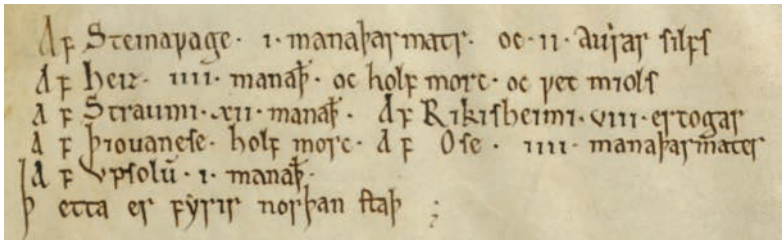 Aꝼ Steinaꝩage · ı · manaþarmatr · oc · ıı · auꝛar ſilfſ
Aꝼ heiꝛ · ıııı · manaþ · oc holf morc · oc ꝩet miolſ
Aꝼ Straumi · xıı · manaþ · Aꝼ Rikiſheimi · vııı · ertogar
Aꝼ þiouaneſe · holf morc · Aꝼ Oſe · ıııı · manaþarmater
Aꝼ vpſolū · ı · manaþ ·
þetta er fyrir norþan ſtaþ ;